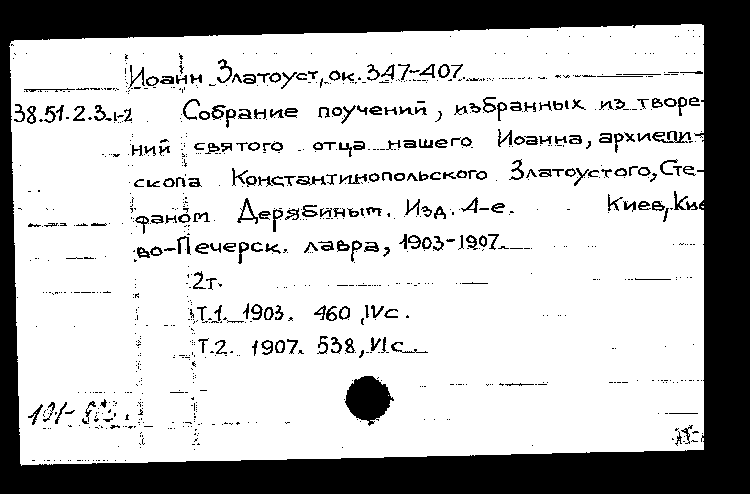 Иоанн Златоуст, ок. 347-407.
38.51.2.3.1-2 Собрание поучений, избранных из творе-
ний святого отца нашего Иоанна, архиепи-
скопа Константинопольского Златоустого, Сте-
фаном Дерябиным. Изд. 4-е. Киев, Кие
во-Печерск. лавра, 1903-1907.
2т.
Т.1. 1903. 460, IV с.
Т.2. 1907. 538, VI с.